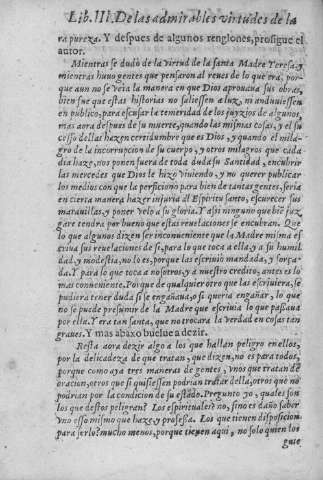 Lib. III. De las admirables virtudes de la
ra pureza. Y despues de algunos renglones, prosigue el
autor.
Mientras se dudò de la virtud de la santa Madre Teresa, y
mientras huuo gentes que pensaron al reues de lo que era, por-
que aun no se veìa la manera en que Dios aprouaua sus obras,
bien fue que estas historias no saliessen a luz, ni anduuiessen
en publico, para escusar la temeridad de los juyzios de algunos,
mas aora despues de su muerte, quando las mismas cosas, y el su
cesso dellas hazen certidumbre que es Dios, y quando el mila-
gro de la incorrupcion de su cuerpo, y otros milagros que cada
dia haze, nos ponen fuera de toda duda su Santidad, encubrir
las mercedes que Dios le hizo viuiendo, y no querer publicar
los medios con que la perficionò para bien de tantas gentes, seria
en cierta manera hazer injuria al Espiritu santo, escurecer sus
marauillas, y poner velo a su gloria. Y assi ninguno que biē juz
gare tendra por bueno que estas reuelaciones se encubran. Que
lo que algunos dizen ser inconueniente que la Madre misma es
criua sus reuelaciones de si, para lo que toca a ella, y a su humil
dad, y modestia, no lo es, porque las escriuiò mandada, y força-
da. Y para lo que toca a nosotros, y a nuestro credito, antes es lo
mas conueniente. Porque de qualquier otro que las escriuiera, se
pudiera tener duda si se engañaua, o si queria engañar, lo que
no se puede presumir de la Madre que escriuia lo que passaua
por ella. Y era tan santa, que no trocara la verdad en cosas tan
graues. Y mas abaxo buelue a dezir.
Resta aora dezir algo a los que hallan peligro en ellos,
por la delicadeza de que tratan, que dizen, no es para todos,
porque como aya tres maneras de gentes, vnos que tratan de
oracion, otros que si quisiessen podrian tratar della, otros que no
podrian por la condicion de su estado. Pregunto yo, quales son
los que destos peligran? Los espirituales? no, sino es daño saber
vno esso mismo que haze, y professa. Los que tienen disposicion
para serlo? mucho menos, porque tienen aqui, no solo quien los
guie